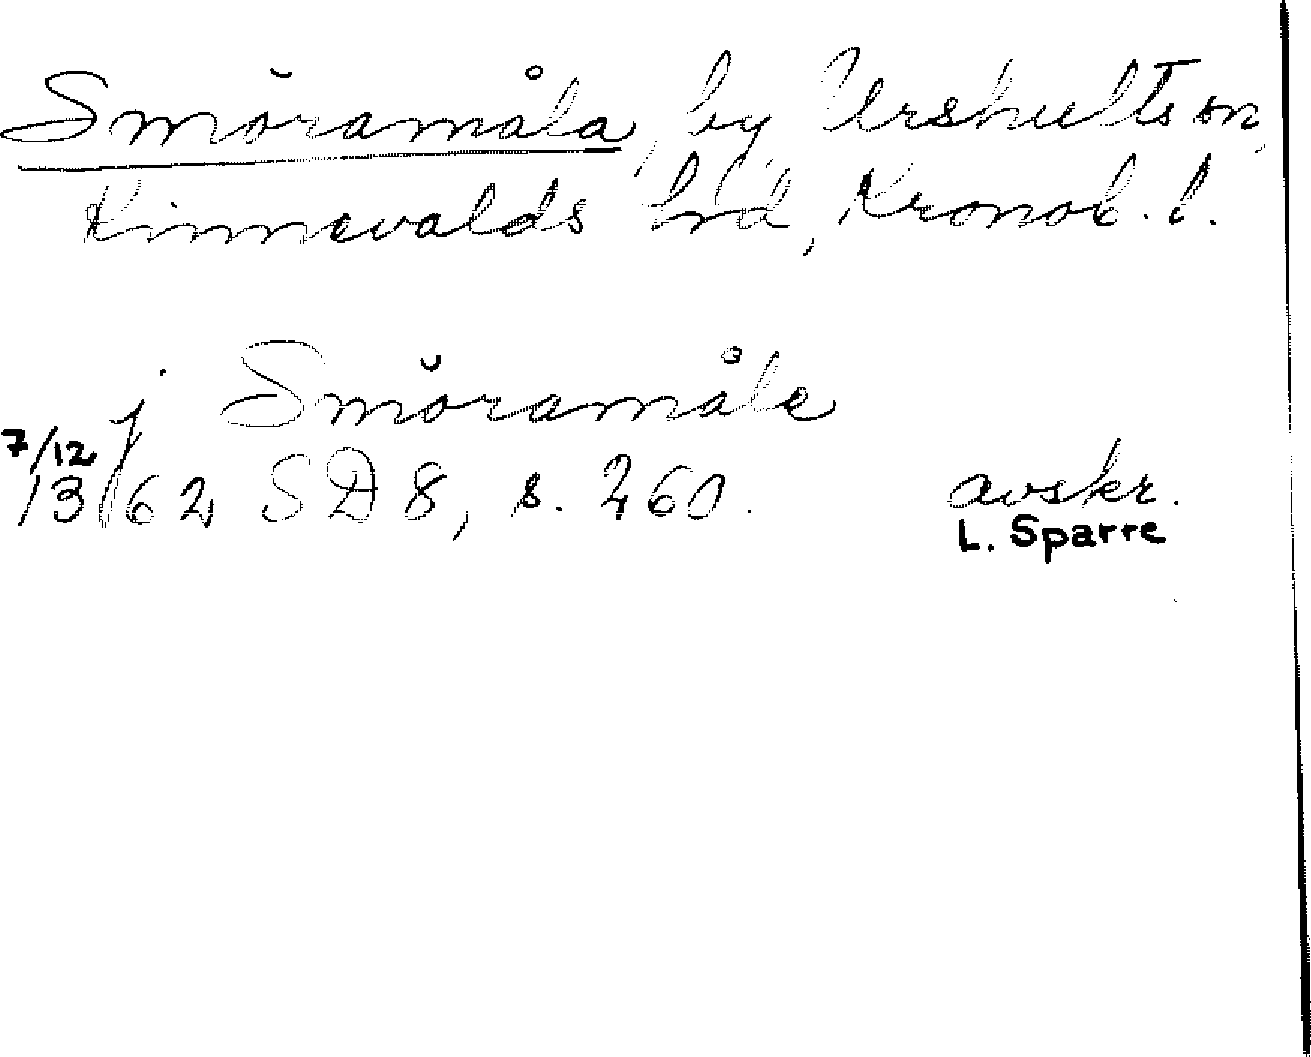 Smöramåla, by, Urshults sn,
Kinnevalds hd, Kronob. l.
j Smöramåle
7/12
1362 SD 8, s. 260. avskr.
L. Sparre